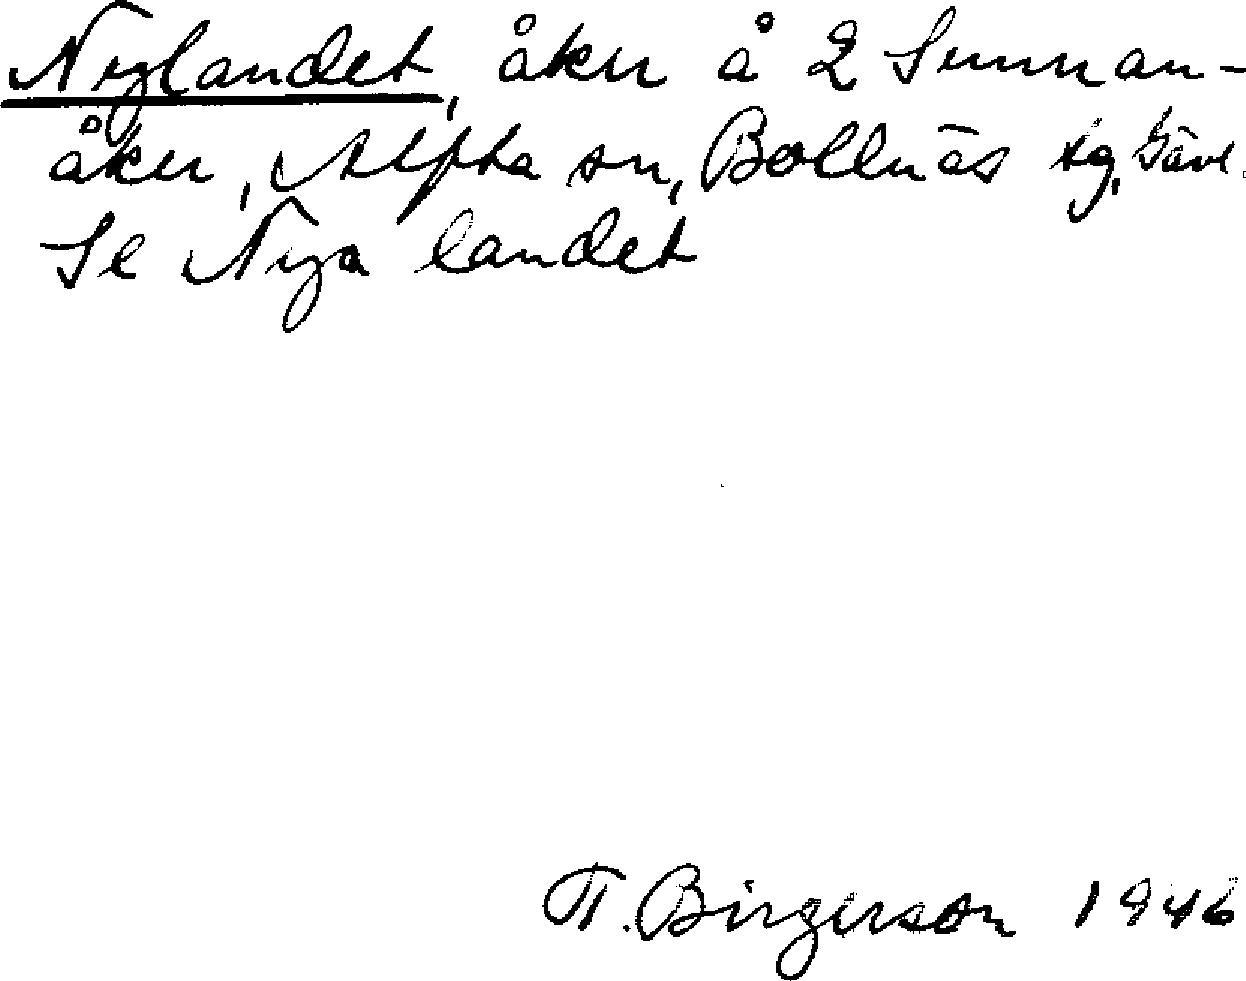 Nylandet, åker å 2 Sunnan-
åker, Alfta sn, Bollnäs tg, Gävl.
Se Nya landet
T. Birgerson 1946